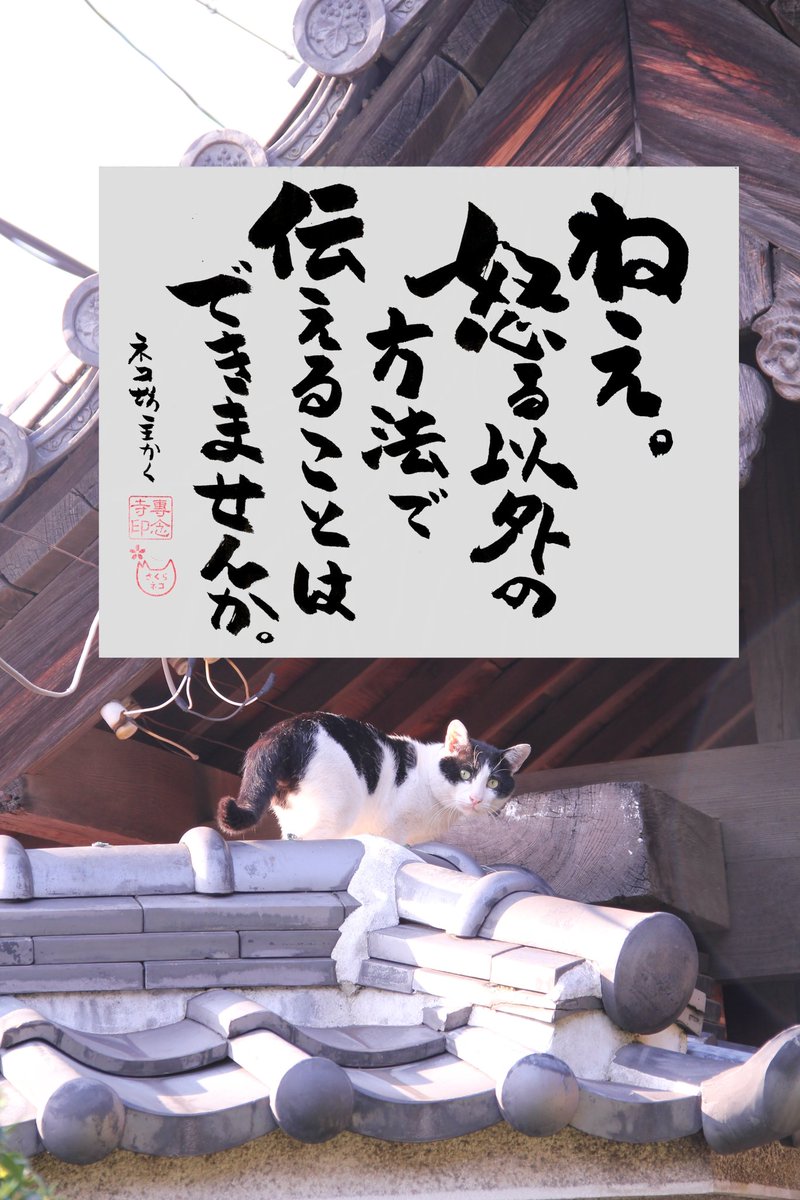 ねえ。
怒る以外の
方法で
伝えることは
できませんか。
ネコ坊主かく
專念
寺印
さくら
ネコ